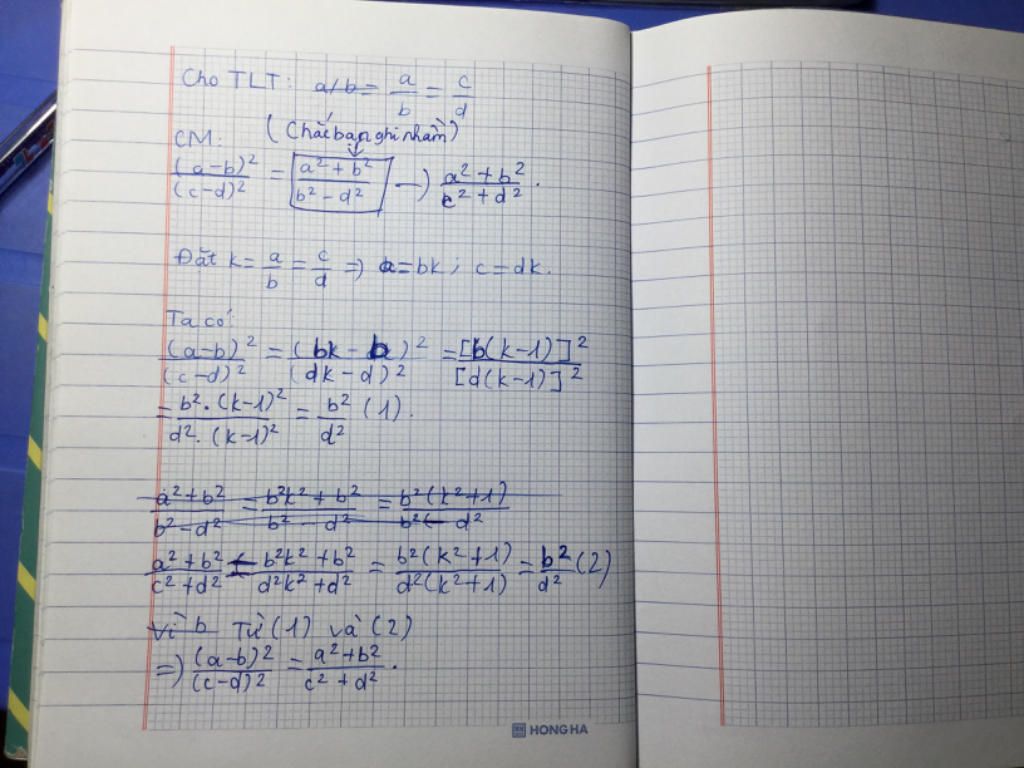 Cho TLT: a/b = a/b = c/d
(Chắc bạn ghi nhầm)
CM:
(a-b)²/(c-d)² = a²+b²/b²-d² → a²+b²/c²+d².
Đặt k = a/b = c/d => a=bk; c=dk.
Ta có:
(a-b)²/(c-d)² = (bk-b)²/(dk-d)² = [b(k-1)]²/[d(k-1)]²
= b².(k-1)²/d².(k-1)² = b²/d² (1).
a²+b²/b²-d² = b²k²+b²/b²-d² = b²(k²+1)/b²(-d²
a²+b²/c²+d² = b²k²+b²/d²k²+d² = b²(k²+1)/d²(k²+1) = b²/d² (2)
Vì b Từ (1) và (2)
=> (a-b)²/(c-d)² = a²+b²/c²+d².
HONG HA